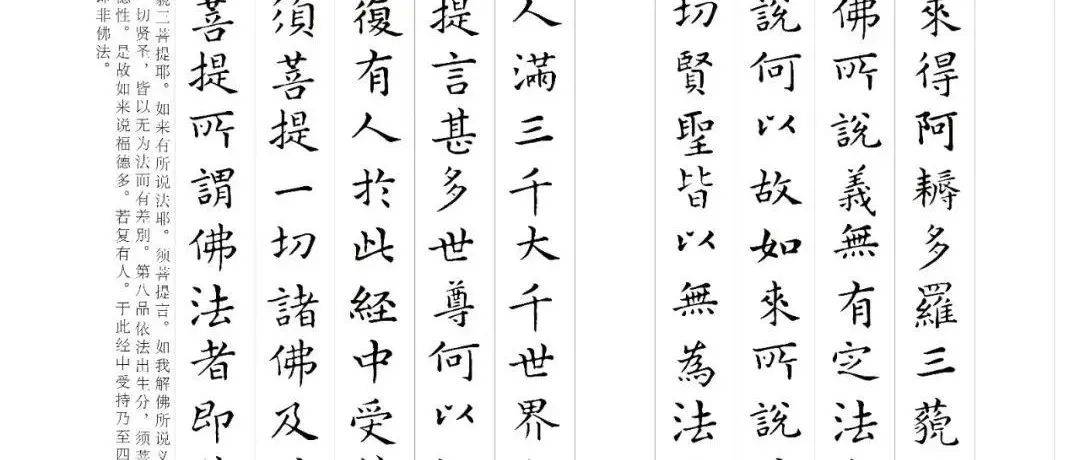 來得阿耨多羅三藐
佛所說義無有定法
說何以故如來所說
切賢聖皆以無為法
人滿三千大千世界
提言甚多世尊何以
復有人於此經中受
須菩提一切諸佛及
菩提所謂佛法者即
藐三菩提耶。如来有所说法耶。须菩提言。如我解佛所说义
切贤圣，皆以无为法而有差别。第八品依法出生分，须菩
德性。是故如来说福德多。若复有人。于此经中受持乃至四
即非佛法。